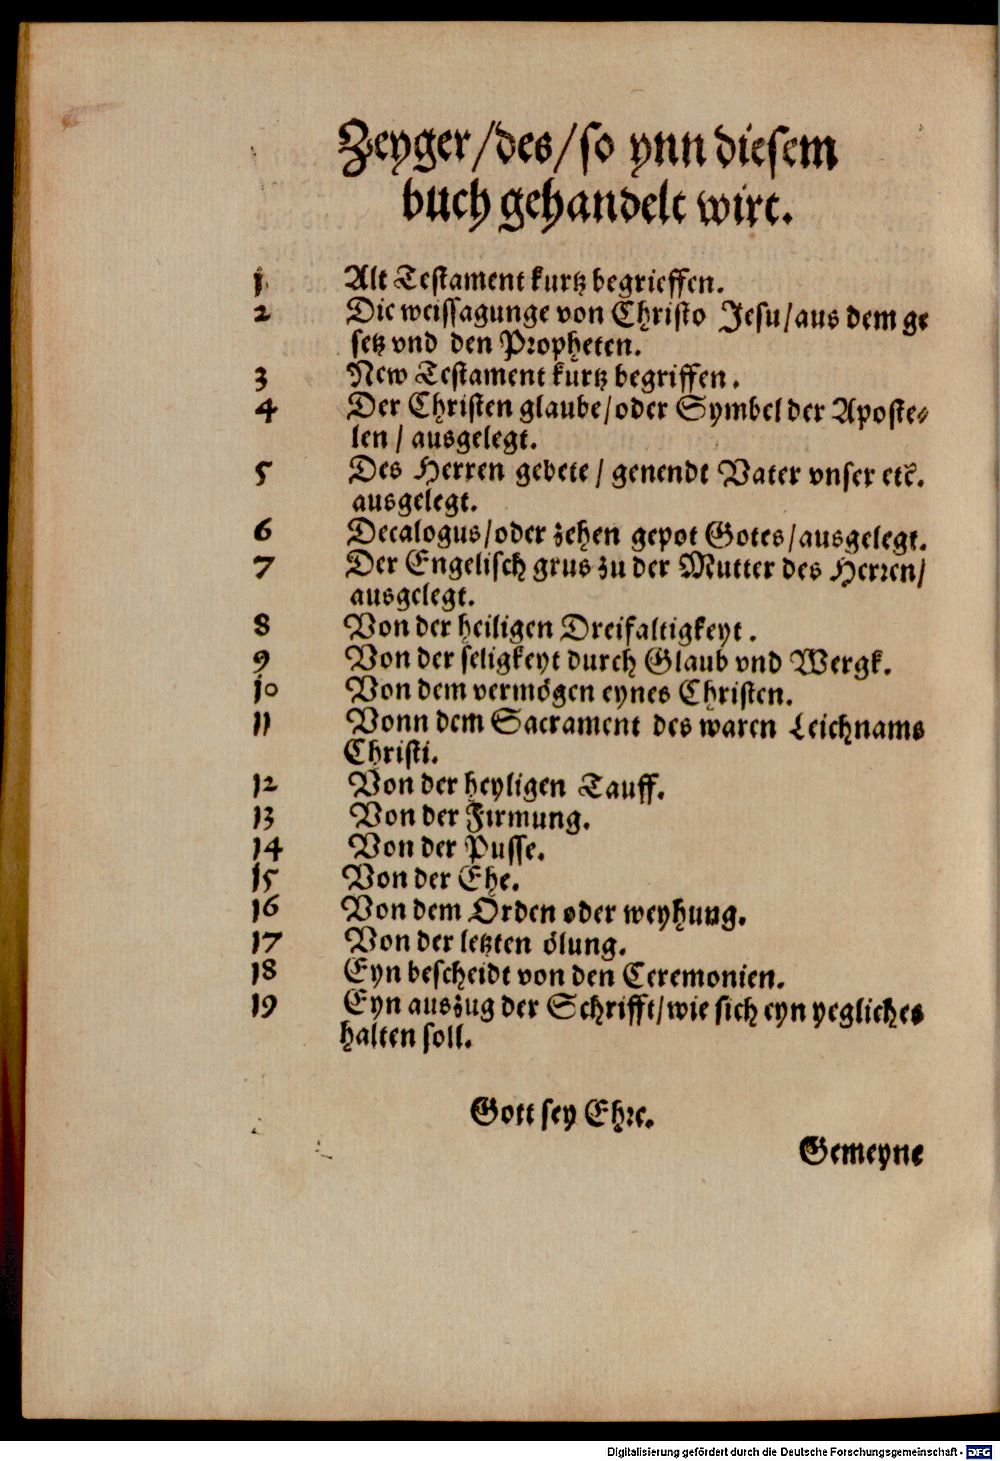 Zeyger / des / so ynn diesem
buch gehandelt wirt.
1 Alt Testament kurtz begrieffen.
2 Die weissagunge von Christo Jesu / aus dem ge
setz vnd den Propheten.
3 New Testament kurtz begriffen.
4 Der Christen glaube / oder Symbel der Aposte⸗
len / ausgelegt.
5 Des Herren gebete / genendt Vater vnser etc̃.
ausgelegt.
6 Decalogus / oder zehen gepot Gotes / ausgelegt.
7 Der Engelisch grus zu der Mutter des Herren /
ausgelegt.
8 Von der heiligen Dreifaltigkeyt.
9 Von der seligkeyt durch Glaub vnd Wergk.
10 Von dem vermögen eynes Christen.
11 Vonn dem Sacrament des waren Leichnams
Christi.
12 Von der heyligen Tauff.
13 Von der Firmung.
14 Von der Pusse.
15 Von der Ehe.
16 Von dem Orden oder weyhung.
17 Von der letzten ölung.
18 Eyn bescheidt von den Ceremonien.
19 Eyn auszug der Schrifft / wie sich eyn yegliches
halten soll.
Gott sey Ehre.
Gemeyne
Digitalisierung gefördert durch die Deutsche Forschungsgemeinschaft - DFG